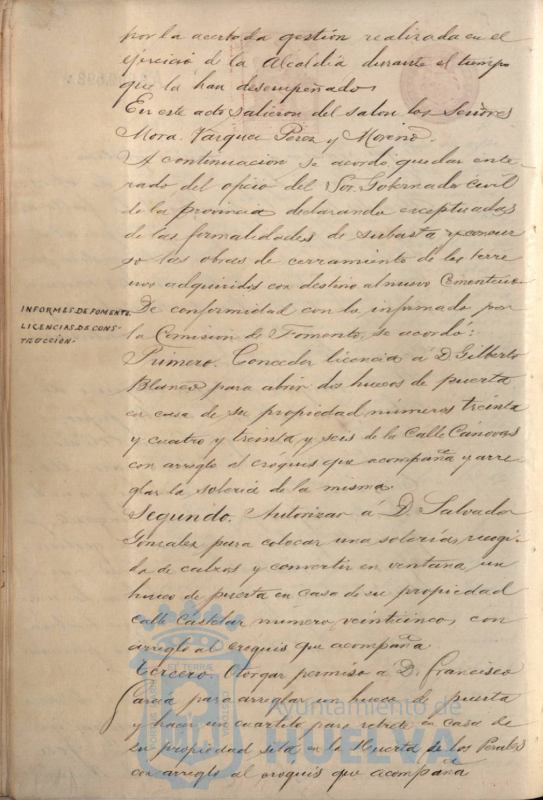 por la acertada gestión realizada en el
ejercicio de la Alcaldía durante el tiempo
que la han desempeñado
En este acto salieron del salon los Señores
Mora, Vázquez Perez y Moreno.
A continuacion se acordó quedar ente-
rado del oficio del Sor. Gobernador civil
de la provincia declarando exceptuadas
de las formalidades de subasta y concur
so las obras de cerramiento de los terre
nos adquiridos con destino al nuevo Cementerio
INFORMES DE FOMENTO
LICENCIAS DE CONS-
TRUCCION.
De conformidad con lo informado por
la Comision de Fomento, se acordó:
Primero. Conceder licencia á D. Gilberto
Blanco para abrir dos huecos de puerta
en casa de su propiedad números treinta
y cuatro y treinta y seis de la Calle Cánovas
con arreglo al cróquis que acompaña y arre
glar la solería de la misma.
Segundo. Autorizar á D. Salvador
Gonzalez para colocar una solería,
de y convertir en ventana un
hueco de puerta en casa de su propiedad
calle Cástelar numero veinticinco, con
arreglo al croquis que acompaña
Tercero. Otorgar permiso a D. Francisco
Garcia para arreglar un hueco de puerta
y hacer un cuartito para retrete en casa de
su propiedad sita en la Huerta de los Perales
con arreglo al croquis que acompaña
Ayuntamiento de
HUELVA